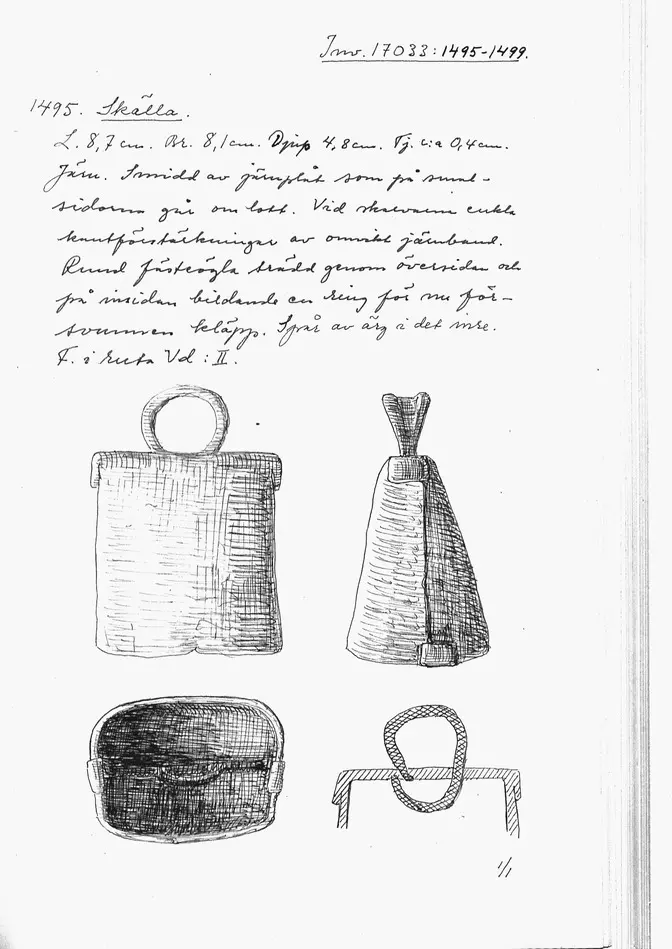 Inv. 17033:1495-1499.
1495. Skälla.
L. 8,7 cm. Br. 8,1 cm. Djup 4,8 cm. Tj. c:a 0,4 cm.
Järn. Smidd av järnplåt som på smal-
sidorna går om lott. Vid skarvarna enkla
kantförstärkningar av omvikt järnband.
Rund fästeögla trädd genom översidan och
på insidan bildande en ring för nu för-
svunnen kläpp. Spår av ärg i det inre.
F. i ruta Vd : II.
1/1